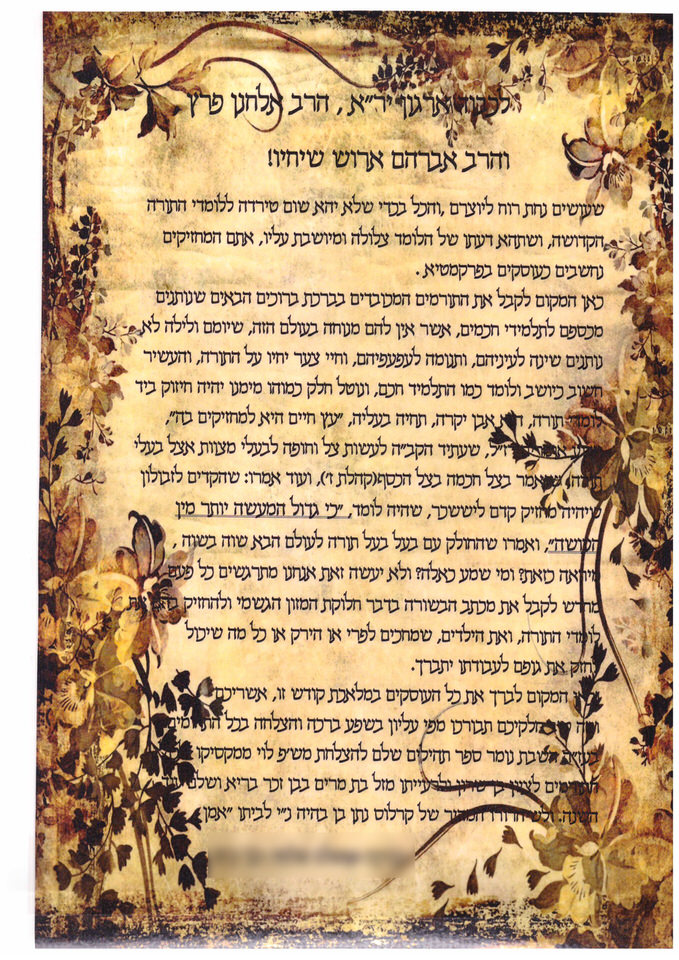 לכבוד ארגון יר״א , הרב אלחנן פרץ
והרב אברהם ארוש שיחיו!
שעושים נחת רוח ליוצרם ,והכל בכדי שלא יהא שום טירדה ללומדי התורה
הקדושה, ושתהא דעתו של הלומד צלולה ומיושבת עליו, אתם המחזיקים
נחשבים כעוסקים בפרקמטיא .
כאן המקום לקבל את התורמים המכובדים בברכת ברוכים הבאים שנותנים
מכספם לתלמידי חכמים, אשר אין להם מנוחה בעולם הזה, שיומם ולילה לא
נותנים שינה לעיניהם, ותנומה לעפעפיהם, וחיי צער יחיו על התורה, והעשיר
חשוב כיושב ולומד כמו התלמיד חכם, ונוטל חלק כמוהו מימנו יהיה חיזוק ביד
לומדי תורה, אבן יקרה, תחיה בעליה, ״עץ חיים היא למחזיקים בה״,
שעתיד הקב״ה לעשות צל וחופה לבעלי מצוות אצל בעלי
תורה, שנאמר בצל חכמה בצל הכסף(קהלת ז׳), ועוד אמרו: שהקדים לזבולון
שיהיה מחזיק קדם ליששכר, שהיה לומד, ״כי גדול המעשה יותר מין
העושה״, ואמרו שהחולק עם בעל בעל תורה לעולם הבא שוה בשוה ,
מי ראה כזאת? ומי שמע כאלה? ולא יעשה זאת אנחנו מתרגשים כל פעם
מחדש לקבל את מכתב הבשורה בדבר חלוקת המזון הגשמי ולהחזיק בהם את
לומדי התורה, ואת הילדים, שמחכים לפרי או הירק או כל מה שיכול
לחזק את גופם לעבודתו יתברך.
המקום לברך את כל העוסקים במלאכת קודש זו, אשריכם
חלקיכם תבורכו מפי עליון בשפע ברכה והצלחה בכל
השבת נומר ספר תהילים שלם להצלחת משיפ לוי ממקסיקו
התורמים לציון בן שרון ולרעייתו מזל בת מרים בבן זכר בריא ושלם
השנה. ולשיחרורו המהיר של קרלוס נתן בן בהיה נ״י לביתו ״אמן